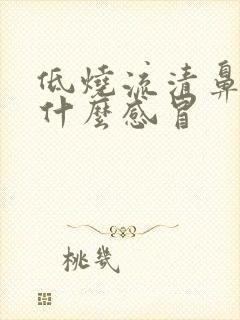 低燒流清鼻
什麼感冒
桃幾